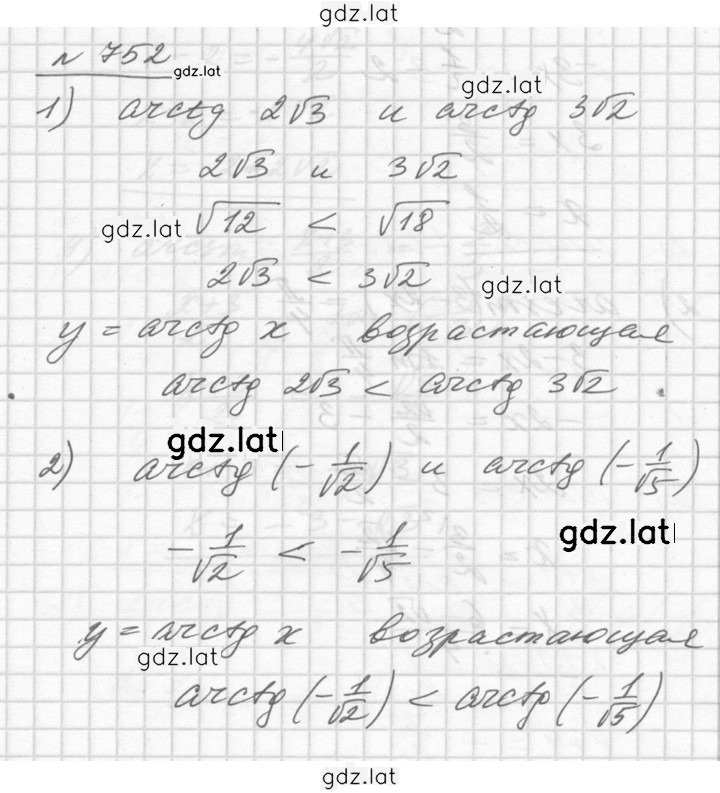 gdz.lat
№ 752 gdz.lat
gdz.lat
1) arctg 2√3 и arctg 3√2
2√3 и 3√2
gdz.lat √12 < √18
2√3 < 3√2 gdz.lat
y = arctg x возрастающая
arctg 2√3 < arctg 3√2 .
gdz.lat
2) arctg (-1/√2) и arctg (-1/√5)
-1/√2 < -1/√5 gdz.lat
y = arctg x возрастающая
gdz.lat
arctg (-1/√2) < arctg (-1/√5)
gdz.lat